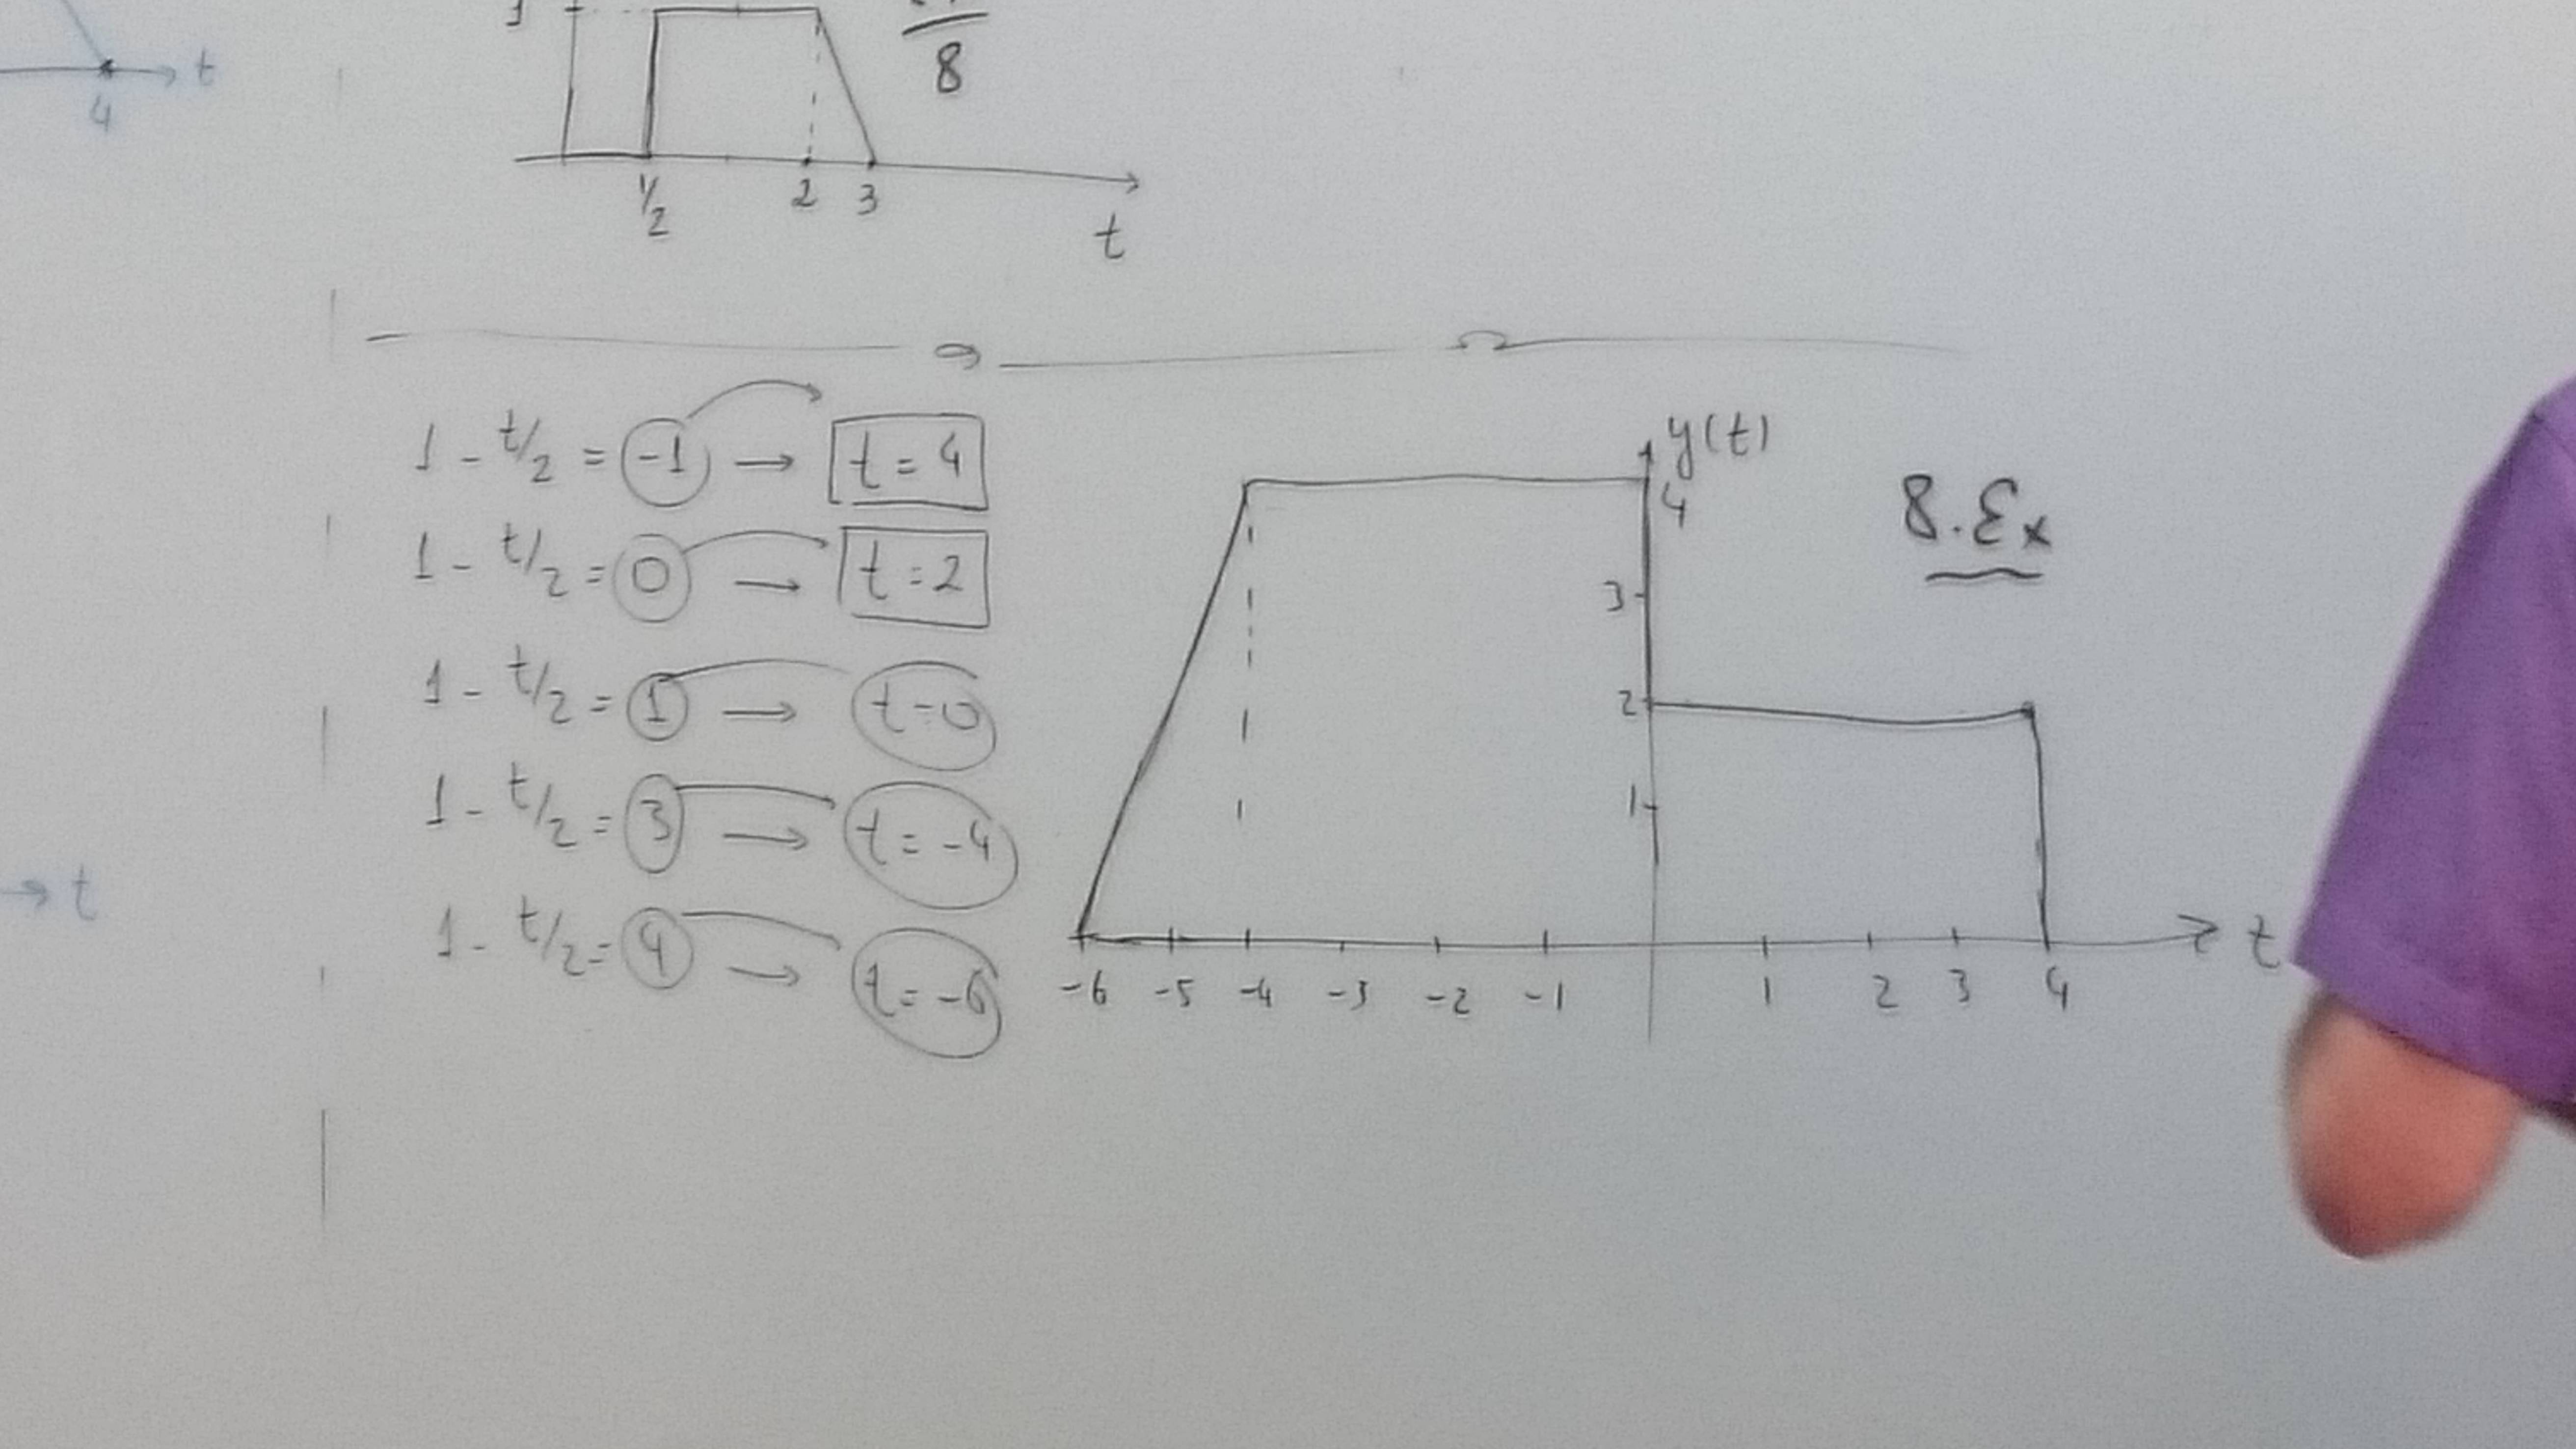 t
4
1
8
1/2 2 3
t
1 - t/2 = -1 → t = 4
1 - t/2 = 0 → t = 2
1 - t/2 = 1 → t = 0
1 - t/2 = 3 → t = -4
1 - t/2 = 4 → t = -6
y(t)
4
3
2
1
-6 -5 -4 -3 -2 -1 1 2 3 4
t
8. Ex
t